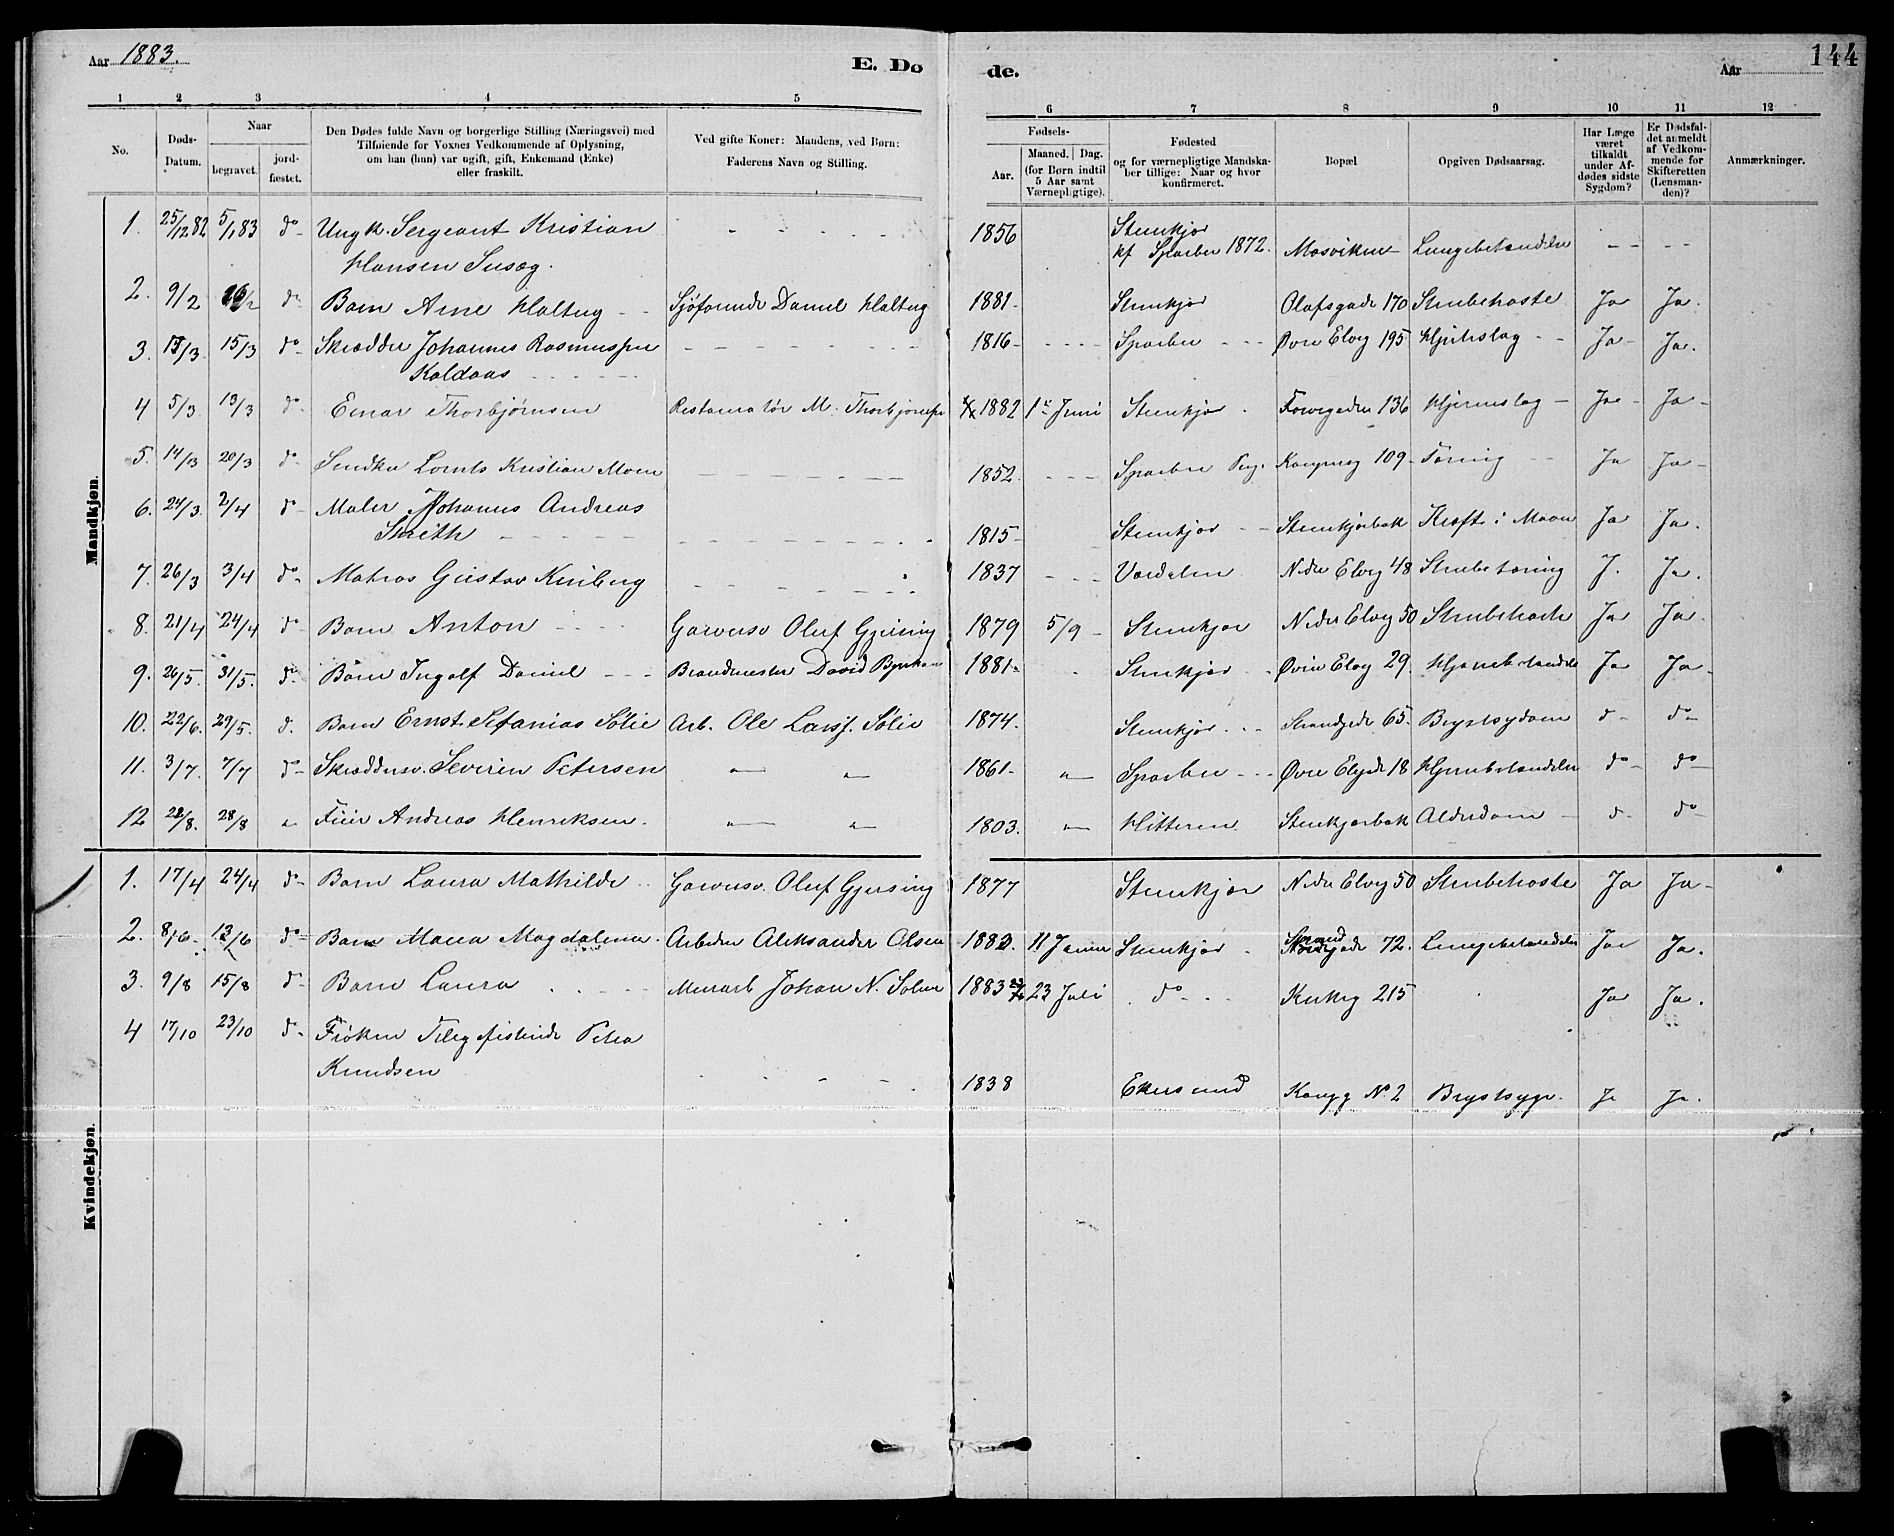 Aar 1883.
E. Dø
de.
Aar
144
1 2 3 4 5 6 7 8 9 10 11 12
No.
Døds-Datum.
Naar
begravet.
jord-fæstet.
Den Dødes fulde Navn og borgerlige Stilling (Næringsvei) med
Tilføiende for Voxnes Vedkommende af Oplysning,
om han (hun) var ugift, gift, Enkemand (Enke)
eller fraskilt.
Ved gifte Koner: Mandens, ved Børn:
Faderens Navn og Stilling.
Fødsels-
Aar.
Maaned. Dag.
(for Børn indtil
5 Aar samt
Værnepligtige).
Fødested
og for værnepligtige Mandska-
ber tillige: Naar og hvor
konfirmeret.
Bopæl
Opgiven Dødsaarsag.
Har Læge
været
tilkaldt
under Af-
dødes sidste
Sygdom?
Er Dødsfal-
det anmeldt
af Vedkom-
mende for
Skifteretten
(Lensman-
den)?
Anmærkninger.
Mandkjøn.
1. 25/12 82 5/1 83 do Ungk. Sergeant Kristian - - - - 1856 Stenkjær
Hansen Susæg. kf Sparbu 1872. Mosviken Lungebetændelse - - - -
2. 9/2 /2 do Barn Arne Holtug - - Sjøfarende Daniel Holtug 1881 - Stenkjær Olafsgade 170 Strubehoste Ja Ja.
3. /3 15/3 do Skrædder Johannes Rasmussen - - - - 1816 - - - - Sparbu - - Øvre Elvg 195 Hjerteslag - - Ja - Ja.
Koldaas - - - -
4 5/3 13/3 do Einar Thorbjørnsen Restauratør M. Thorbjørnsen 1882 1ste Juni Stenkjær - 136 Hjerneslag - Ja - Ja -
5. 14/3 20/3 do Lornts Kristian Moen - - - - 1852. - - - Sparbu Kongensg 109 - Tæring - - Ja Ja -
6. 24/3 2/4 do Maler Johannes Andreas
Smith - - - - 1815 - Stenkjær - - Stenkjærbak Kræft i Maven Ja Ja.
7. 26/3 3/4 do Matros Gustav - - - - 1837 - - - Værdalen Nedre Elvg 48 Strubetæring J. Ja.
8. 21/4 24/4 do Barn Anton - - - Garversv Oluf Gjersing 1879 5/9 - Stenkjær Nedre Elvg 50 Strubehoste Ja Ja.
9. 26/5. 31/5. do Barn Ingolf Daniel - - - Brandmester David 1881 - - Stenkjær - Øvre Elvg 29. Hjernebetændelse Ja Ja -
10. 22/6. 29/5. d. Barn Ernst Stefanias Sølie Arb. Ole Larss. Sølie 1874. Stenkjær - - - Strandgade 65. Brystsygdom do - do -
11. 3/7. 7/7 do Skræddersv. Severin Petersen " " 1861 - " Sparbu - - - Øvre Elvgade 18 Hjernebetændelse do - do -
12 22/8. 28/8 " Feier Andreas Henriksen. " " 1803. " Hitteren Stenkjærbak Alderdom - do - do -
Kvindekjøn.
1. 17/4 24/4 do Barn Laura Mathilde - - Garversv. Oluf Gjersing 1877 Stenkjær Nedre Elvg 50 Strubehoste Ja Ja -
2. 8/6 13/6 do Barn Maria Magdalena - Arbeider Aleksander Olsen 1882. 11 Januar Stenkjær - Strand
gade 72. Lungebetændelse Ja Ja.
3. 9/8 15/8 do Barn Laura - - - - Murarb Johan N. 1883 23 Juli - do - - - Kirkeg 215 Ja Ja.
4 17/10 23/10 do Frøken Telegrafistinde Petra
Knudsen - - - - 1838 Ekersund Kongg No 2 Brystsyge. Ja Ja.